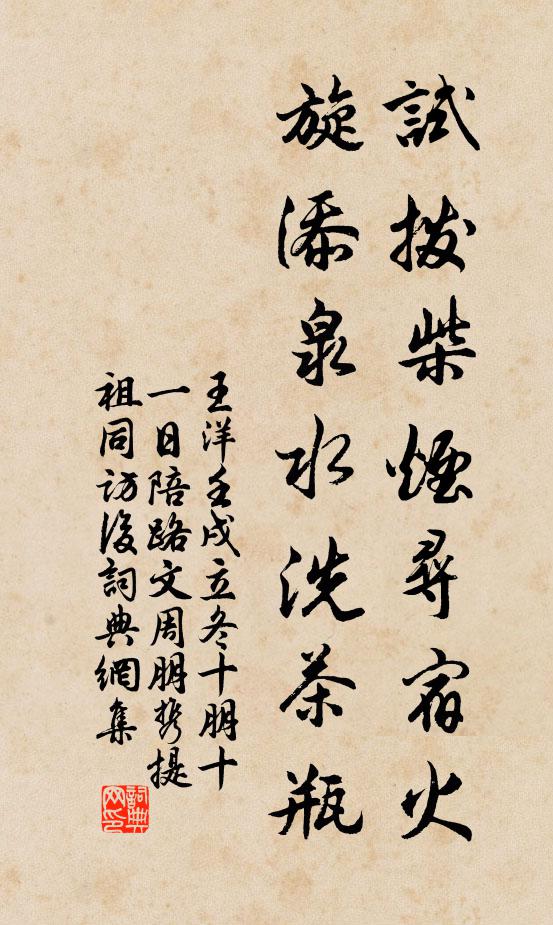 試撥柴煙尋宿火
旋添泉水洗茶瓶
王洋壬戌立冬十朋十
一日陪路文周朋携提
祖同訪後詞典網集
詞典网印